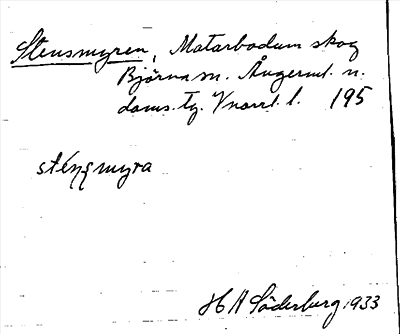 Stensmyren, Matarbodum skog
Björna sn. Ångerml. n.
doms. tg. Vnorrl. l. 195
sténsmyra
H A Söderburg 1933